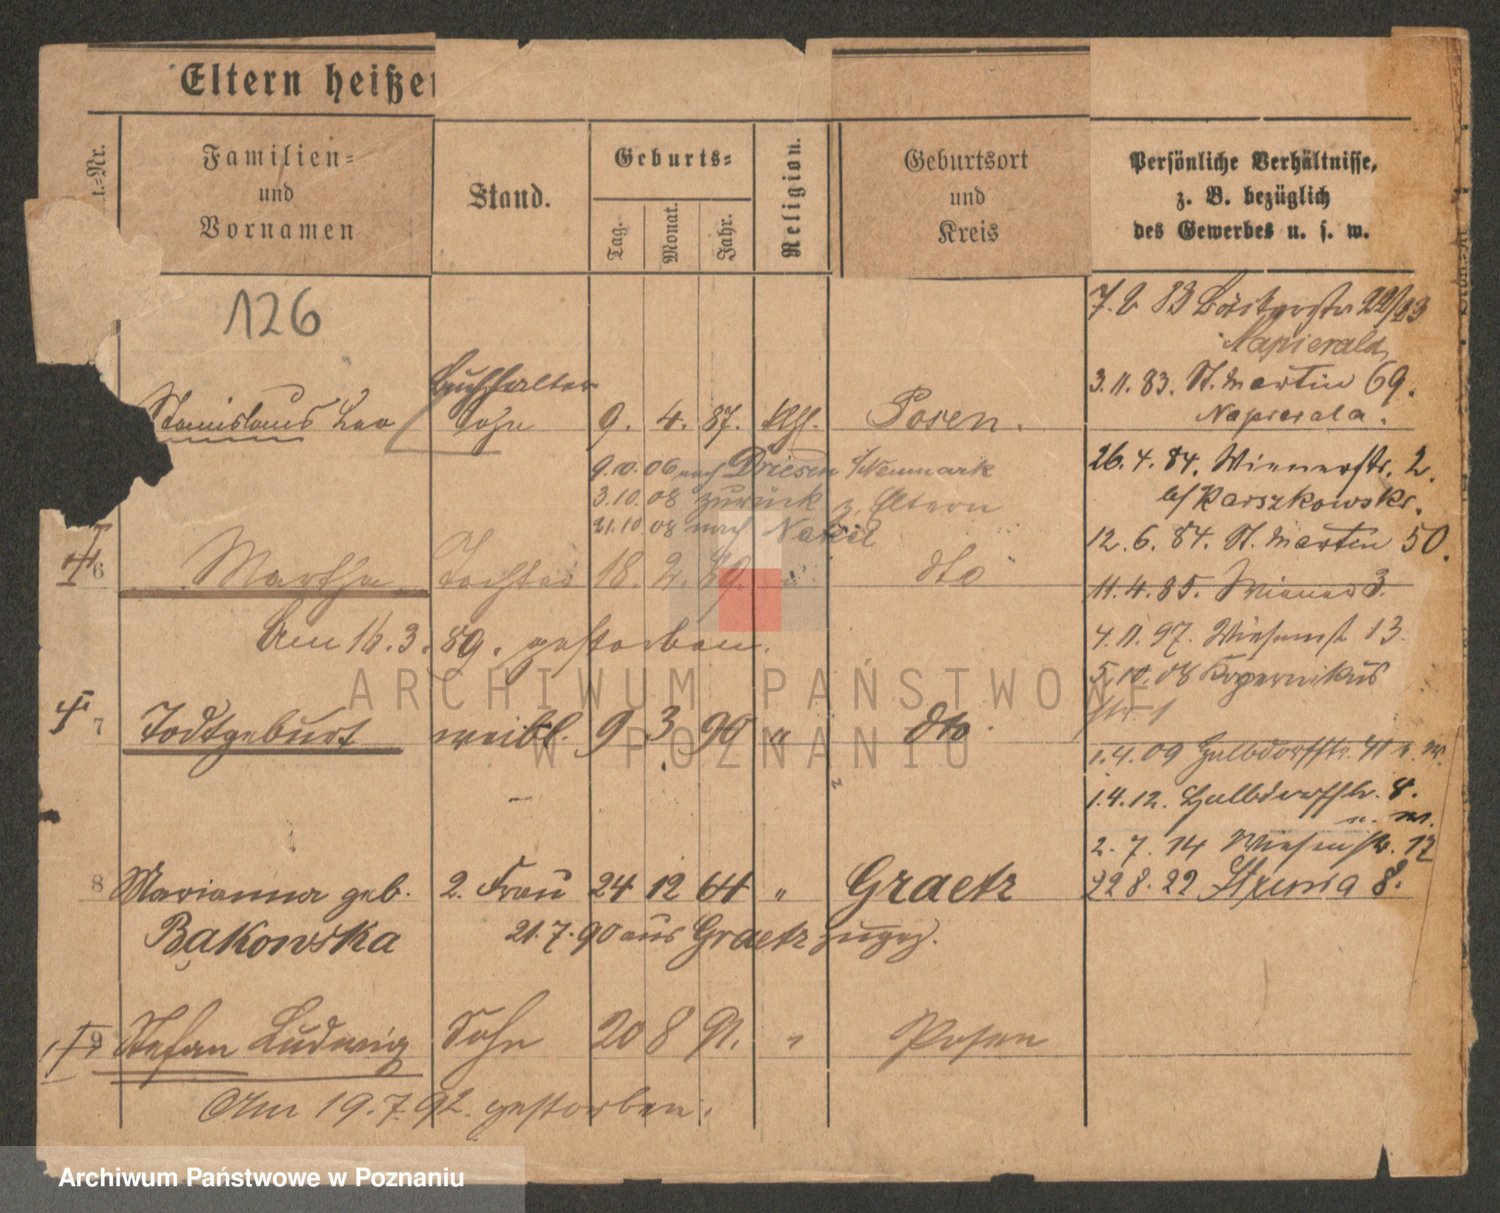 Eltern heißen
Familien=
und
Vornamen
Stand.
Geburts=
Tag.
Monat.
Jahr.
Religion.
Geburtsort
und
Kreis
Persönliche Verhältnisse,
z. B. bezüglich
des Gewerbes u. s. w.
126
Buchhalter
Stanislaus Leo Sohn 9. 4. 87. Kth. Posen.
9.10.06 nach Driesen /Neumark
3.10.08 zurück z. Eltern
21.10 08 nach Nakel
6 Martha Tochter 18. 2. 89. " dto
Am 16.3.89. gestorben.
7 Todtgeburt weibl. 9 3 90 " dto.
8 Marianna geb. 2. Frau 24 12 64 " Graetz
Bąkowska 21.7.90 aus Graetz zugez.
9 Stefan Ludwig Sohn 20 8 91. " Posen
Am 19.7.92. gestorben.
83
Napierala
3.11.83. St. Martin 69.
Napierala.
26.4.84. Wienerstr. 2.
b/ Karszkowski.
12.6.84. St. Martin 50.
11.4.85. Wiener 3.
4.11.97. Wiesenst 13.
5.10.08 Kopernikus
str. 1
1.4.09 Halbdorfstr.
1.4.12. Halbdorfstr. 8.
2.7.14 Wiesenstr. 17
22 8.22 Strusia 8.
ARCHIWUM PAŃSTWOWE
W POZNANIU
Archiwum Państwowe w Poznaniu